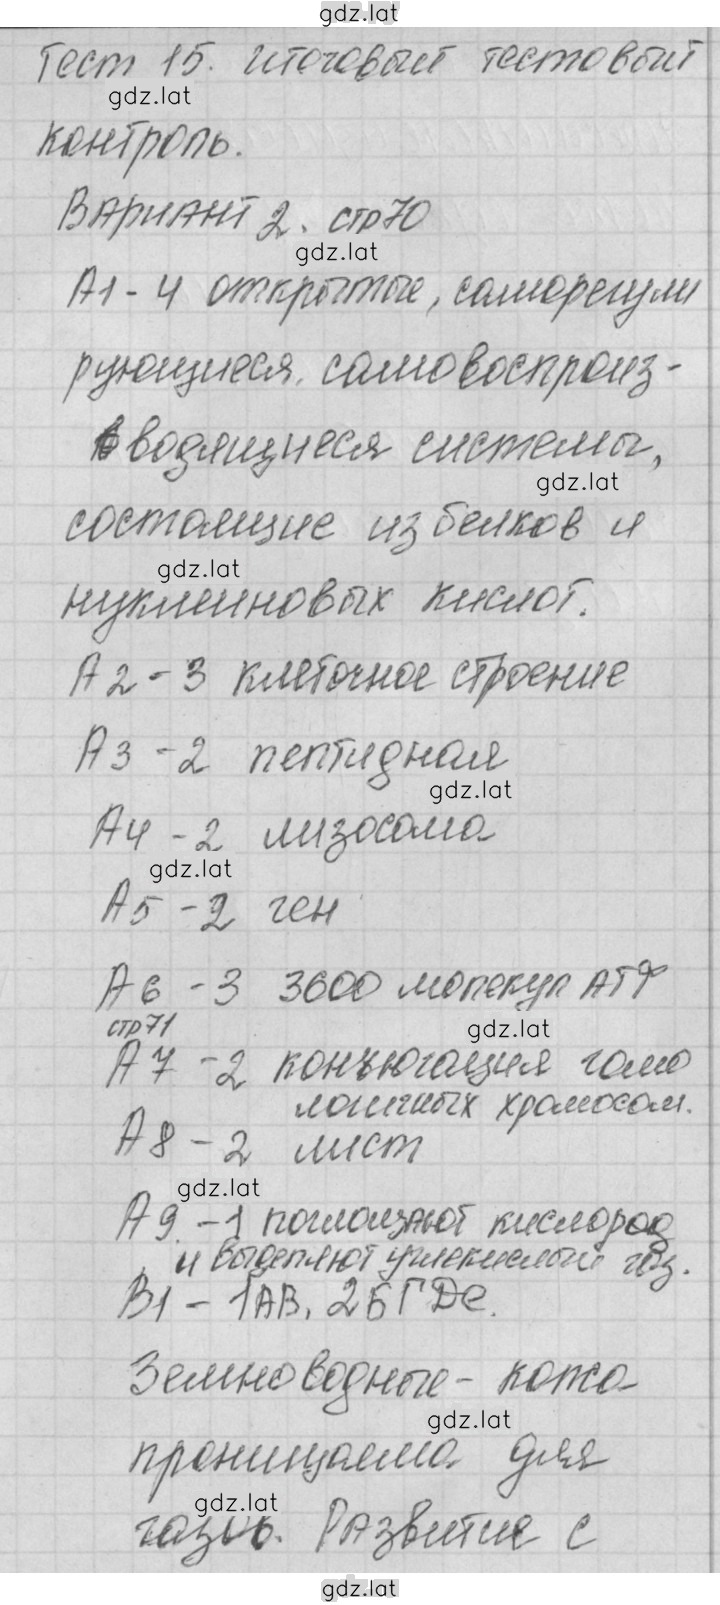 gdz.lat
Тест 15. Итоговый тестовый
gdz.lat
контроль.
Вариант 2. стр 70
gdz.lat
А1 - 4 открытые, саморегули
рующиеся, самовоспроиз-
водящиеся системы,
gdz.lat
состоящие из белков и
gdz.lat
нуклеиновых кислот.
А2 - 3 клеточное строение
А3 - 2 пептидная
gdz.lat
А4 - 2 лизосома
gdz.lat
А5 - 2 ген
А6 - 3 3600 молекул АТФ
стр 71
gdz.lat
А7 - 2 конъюгация гомо
логичных хромосом.
А8 - 2 лист
gdz.lat
А9 - 1 поглощают кислород
и выделяют углекислый газ.
В1 - 1АВ, 2БГДе.
Земноводные - кожа
gdz.lat
проницаема для
gdz.lat
газов. Развитие с
gdz.lat